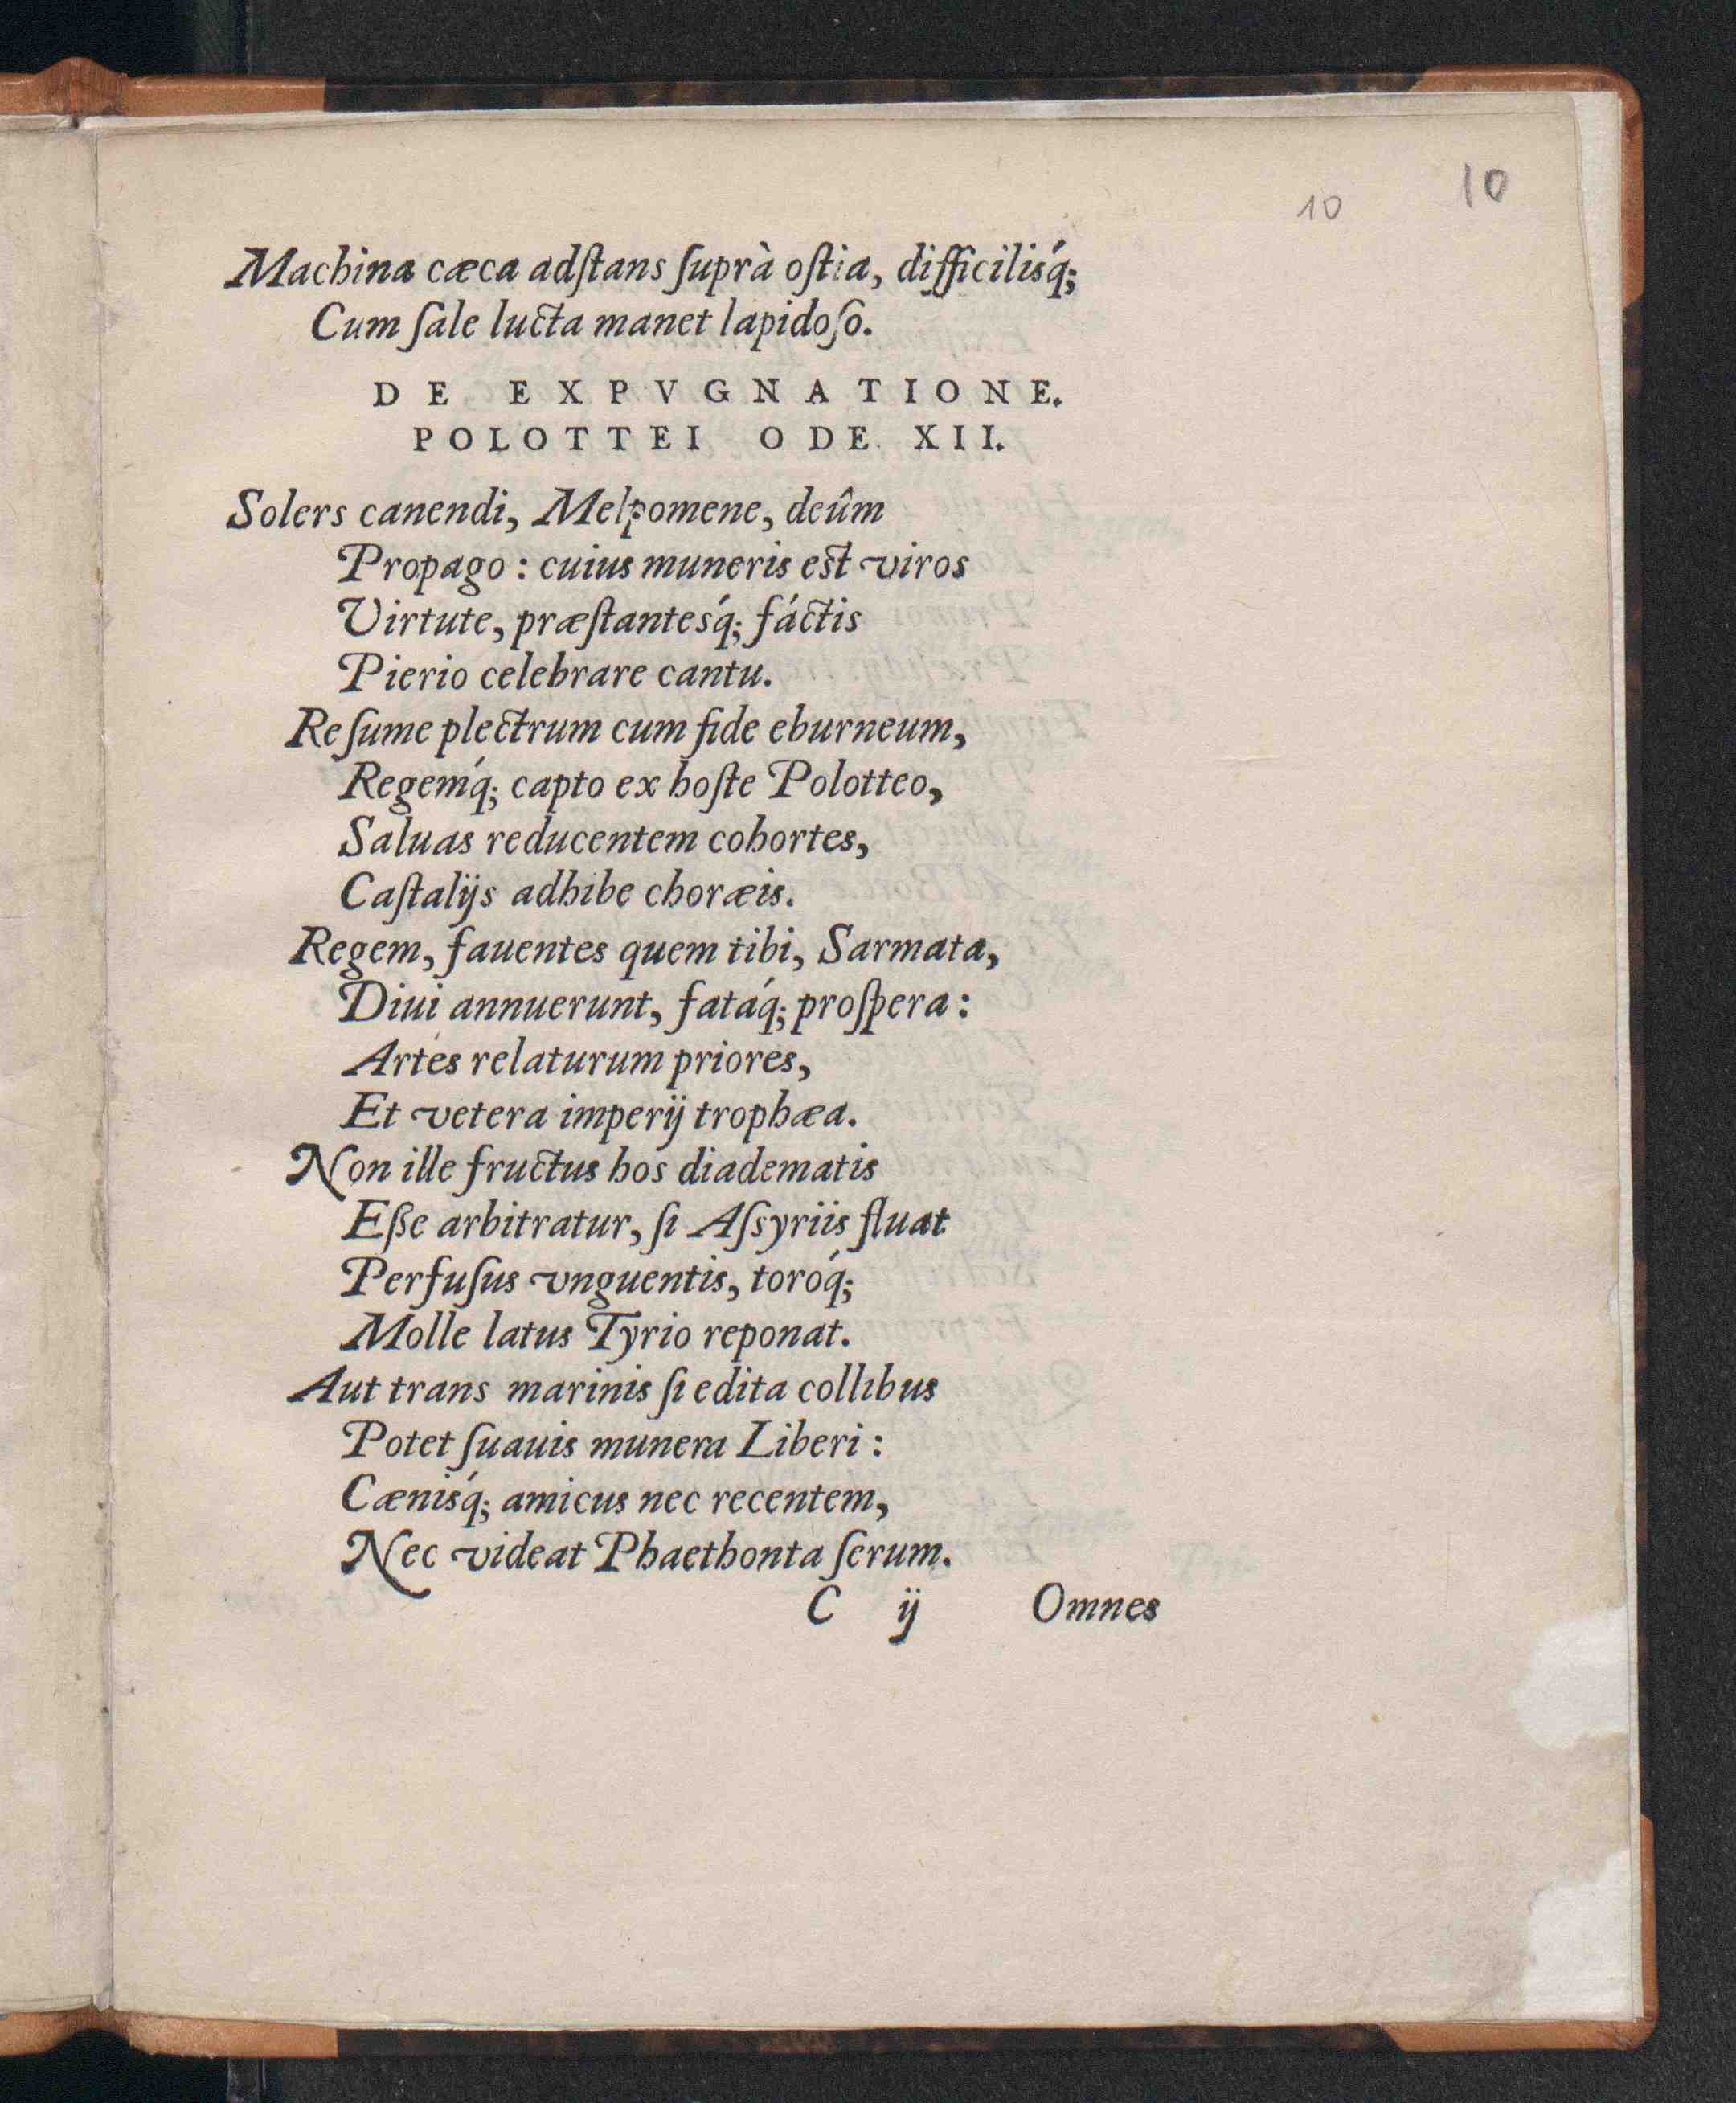 10 10
Machina cæca adſtans ſuprà oſtia, difficiliśq;
Cum ſale lucta manet lapidoſo.
DE EXPVGNATIONE.
POLOTTEI ODE XII.
Solers canendi, Melpomene, deûm
Propago: cuius muneris est viros
Virtute, præſtanteśq; fáctis
Pierio celebrare cantu.
Reſume plectrum cum fide eburneum,
Regeḿq; capto ex hoſte Polotteo,
Saluas reducentem cohortes,
Caſtalijs adhibe choræis.
Regem, fauentes quem tibi, Sarmata,
Diui annuerunt, fatáq; proſpera:
Artes relaturum priores,
Et vetera imperij trophæa.
Non ille fructus hos diadematis
Eße arbitratur, ſi Aſsyriis fluat
Perfuſus vnguentis, toróq;
Molle latus Tyrio reponat.
Aut trans marinis ſi edita collibus
Potet ſuauis munera Liberi:
Cæniśq; amicus nec recentem,
Nec videat Phaethonta ſerum.
C ij Omnes